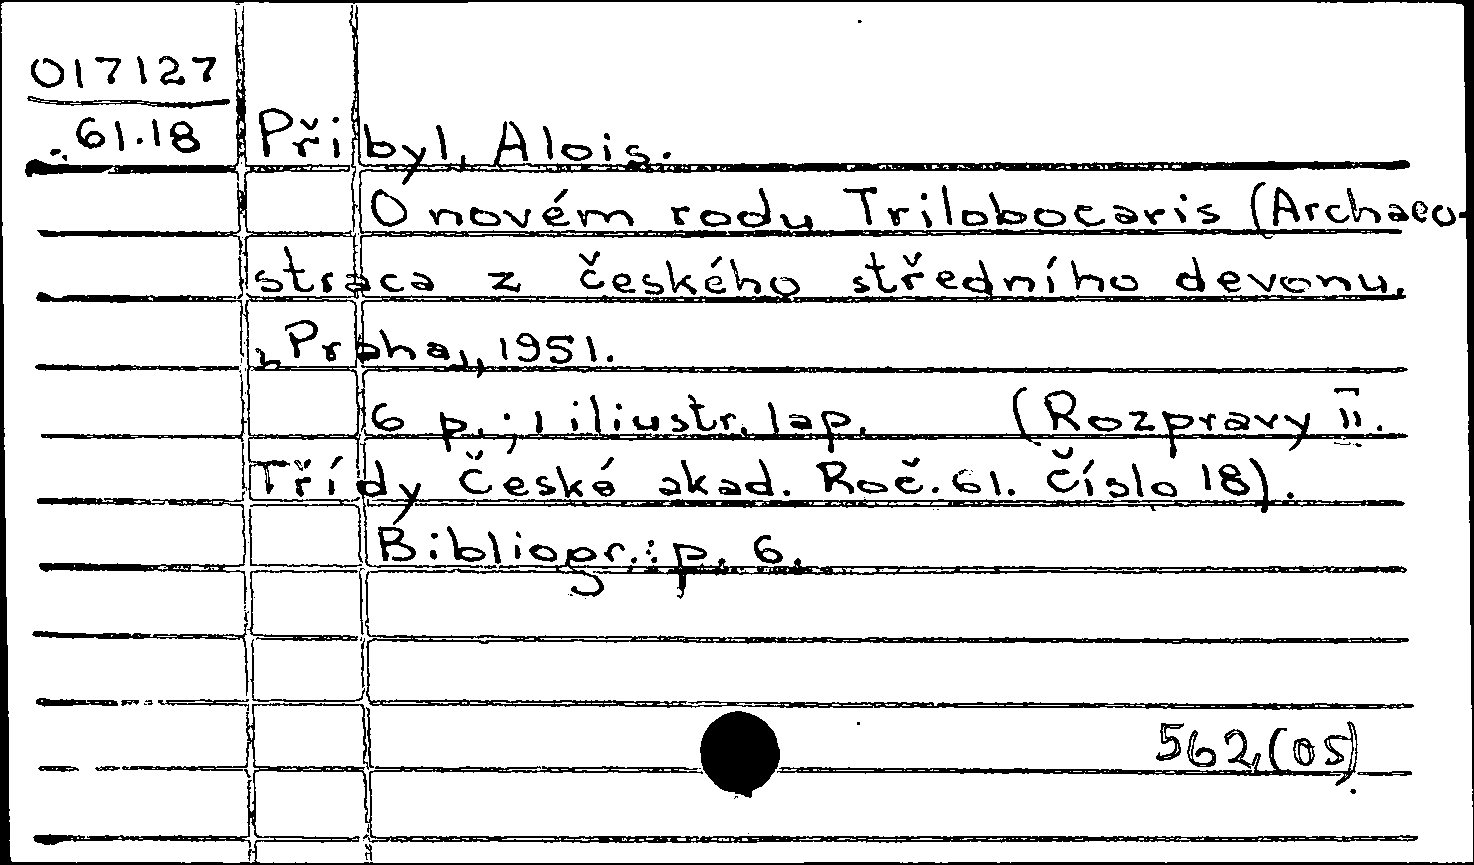 017127
61.18
Přibyl, Alois.
O novém rodu Trilobocaris (Archaeo-
straca z českého středního devonu.
[Praha], 1951.
6 p.; 1 iliustr. lap. (Rozpravy II.
Třídy České akad. Roč. 61. Číslo 18).
Bibliogr.: p. 6.
562(05)